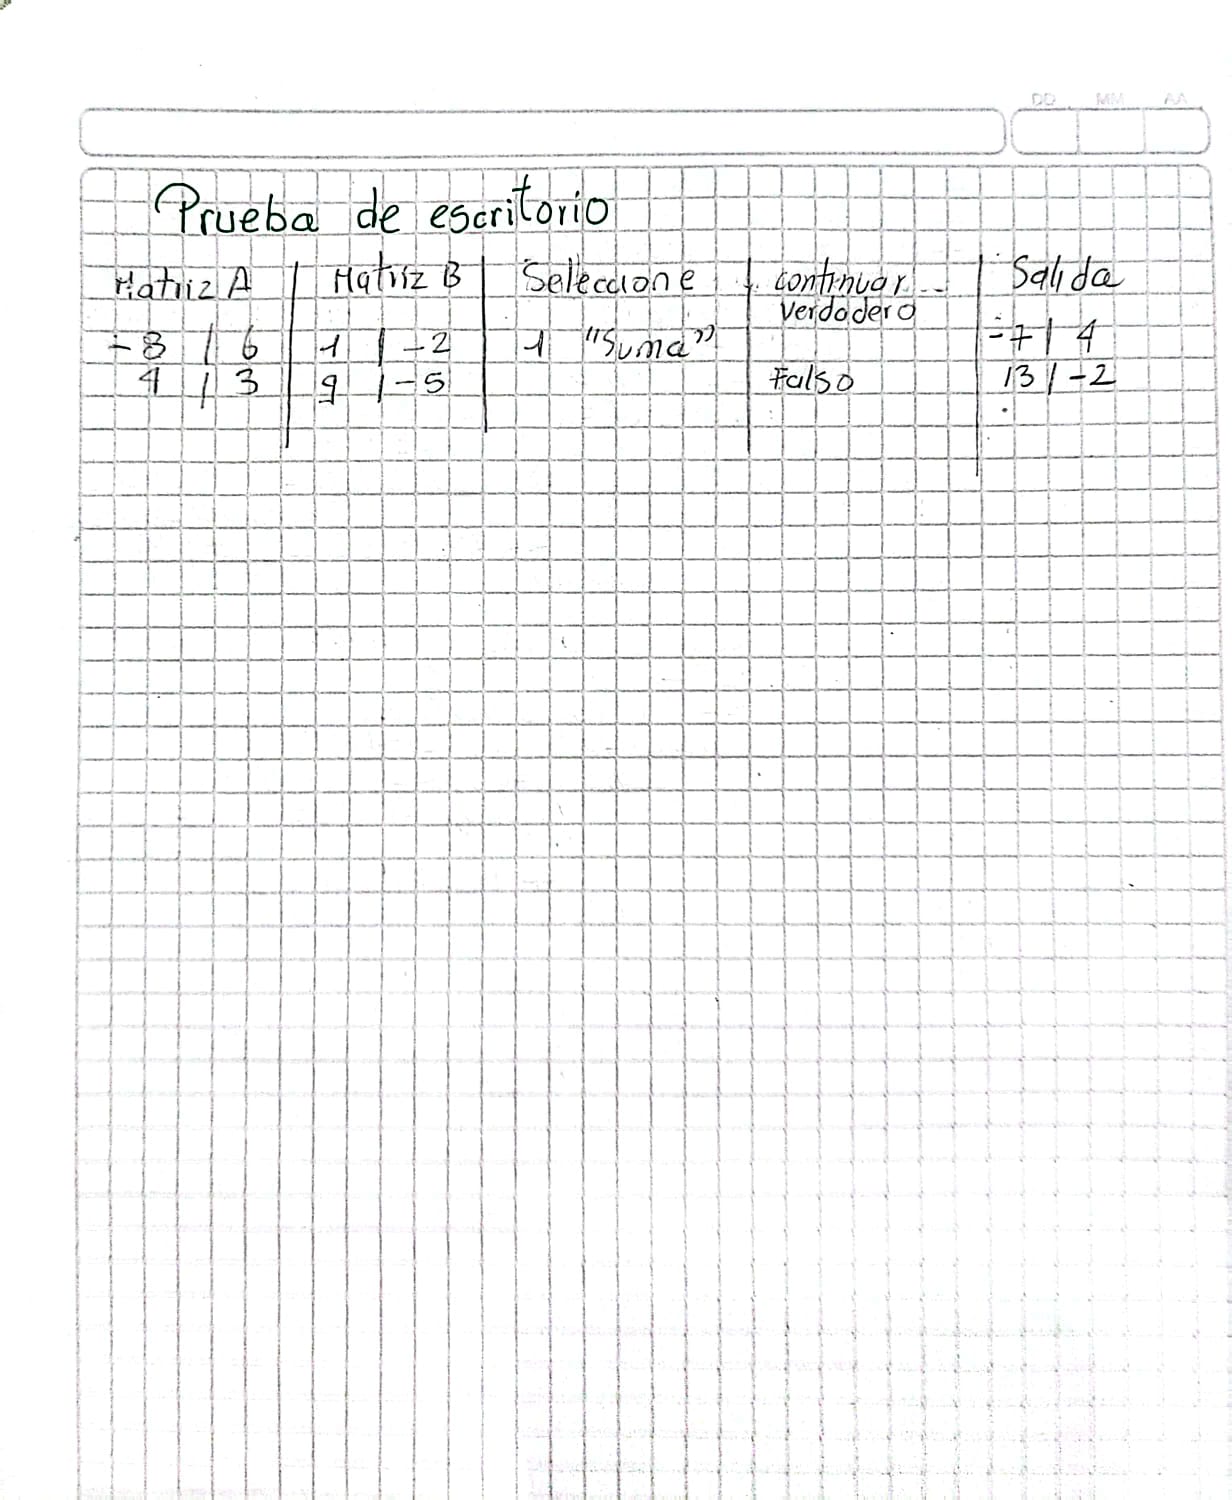 DD MM AA
Prueba de escritorio
Matriz A | Matriz B | Seleccione | continuar... | Salida
verdadero
-8 | 6 | 1 | -2 | 1 "Suma" | -7 | 4
4 | 3 | 9 | -5 | Falso | 13 | -2